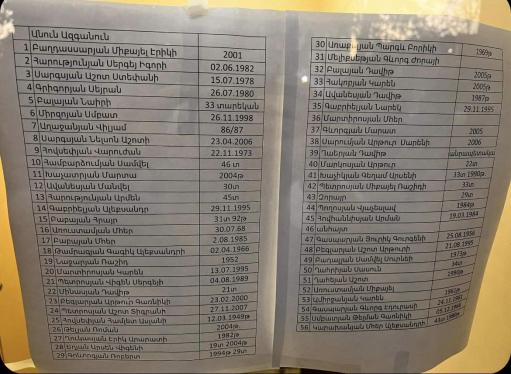 Անուն Ազգանուն
1 Բաղդասարյան Միքայել Էրիկի 2001
2 Հարությունյան Սերգեյ Իգորի 02.06.1982
3 Սարգսյան Աշոտ Ստեփանի 15.07.1978
4 Գրիգորյան Սեյրան 26.07.1980
5 Բալայան Նաիրի 33 տարեկան
6 Միրզոյան Սմբատ 26.11.1998
7 Աղաջանյան Վիլյամ 86/87
8 Սարգսյան Նելսոն Աշոտի 23.04.2006
9 Հովսեփյան Վարուժան 22.11.1973
10 Համբարձումյան Սամվել 46 տ
11 Խաչատրյան Մարտա 2004թ
12 Ավանեսյան Մանվել 30տ
13 Հարությունյան Արմեն 45տ
14 Գաբրիելյան Ալեքսանդր 29.11.1995
15 Բաբայան Հրայր 31տ 92թ
16 Առուստամյան Մհեր 30.07.68
17 Բաբայան Մհեր 2.08.1985
18 Թամրազյան Գագիկ Ալեքսանդրի 02.04.1966
19 Նազարյան Ռաշիդ 1952
20 Մարտիրոսյան Կարեն 13.07.1995
21 Պետրոսյան Վիգեն Սերգեյի 04.08.1989
22 Մինասյան Դավիթ 21տ
23 Բեգլարյան Արթուր Գառնիկի 23.02.2000
24 Պետրոսյան Աշոտ Տիգրանի 27.11.2007
25 Հովսեփյան Համլետ Ասլանի 12.03.1949թ
26 Թելյան Ռոման 2004թ.
27 Ղուկասյան Էրիկ Արարատի 1982թ
28 Եղյան Արսեն Վիգենի 19տ 2004թ
29 Գևորգյան Ռոբերտ 1994թ 29տ
30 Առաքելյան Պարգև Բորիկի 1969թ
31 Մելիքսեթյան Գևորգ Ժորայի
32 Բալայան Դավիթ 2005թ
33 Հակոբյան Կարեն 2005թ
34 Ավանեսյան Դավիթ 1987թ
35 Գաբրիելյան Նարեկ 29.11.1995
36 Մարտիրոսյան Մհեր
37 Գևորգյան Մարատ 2005
38 Սարումյան Արթուր Սարենի 2006
39 Դաերյան Դավիթ
40 Մարկոսյան Արթուր 22տ
41 Խաչիկյան Գեղամ Արսենի 33տ 1990թ
42 Պետրոսյան Միքայել Ռաշիդի 33տ
43 Զորայր 29տ
44 Պողոսյան Վյաչեսլավ 1984թ
45 Հովհաննիսյան Արման 19.03.1984
46 անհայտ
47 Գասպարյան Յուրիկ Գուրգենի 25.08.1956
48 Բեգլարյան Աշոտ Արթուրի 21.08.1995
49 Բադալյան Սամվել Սուրենի 1973թ
50 Դահրյան Սասուն 34տ
51 Դալելյան Աշոտ 1980թ
52 Առուստամյան Միքայել
53 Ամիրբեկյան Կարեն 1961թ
54 Գասպարյան Գևորգ Էդուարդի 24.11.1982
55 Սմբատյան Թելման Գառնիկի 05.12.1985
56 Կարախանյան Մհեր Ալեքսանդրի 43տ 1980թ